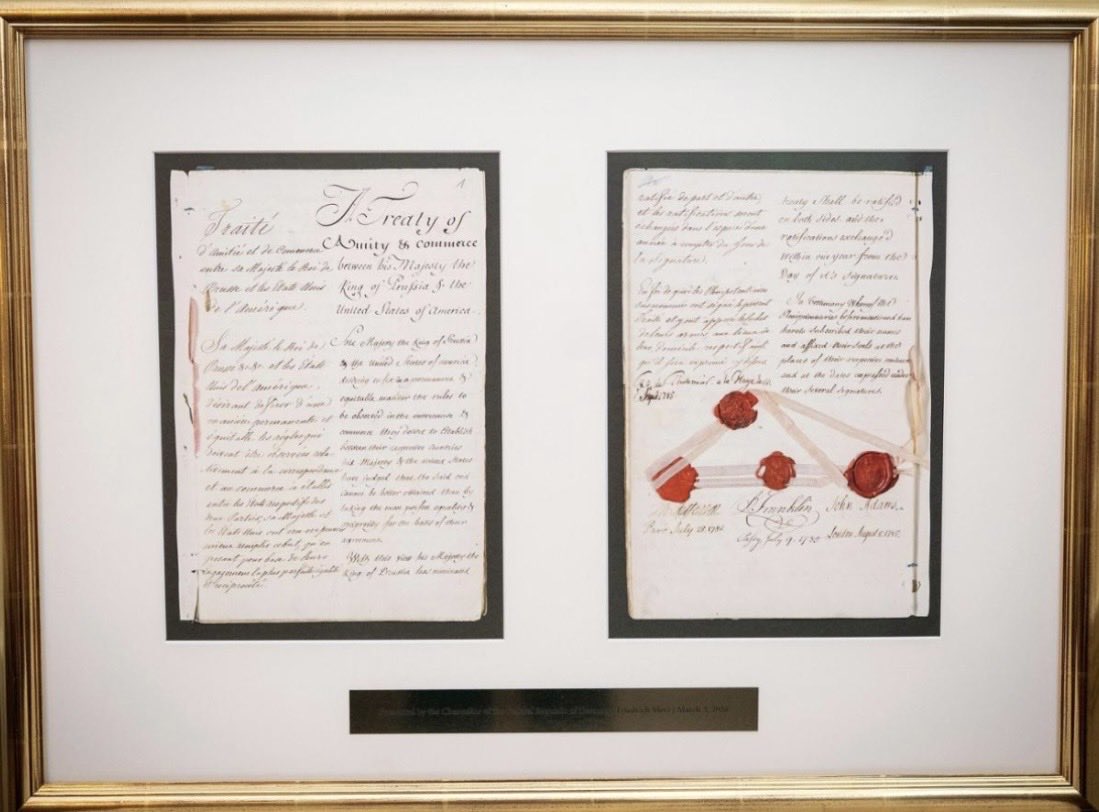 1
Traité
d'Amitié et de Commerce
entre sa Majesté le Roi de
Prusse et les Etats Unis
de l'Amérique.
Sa Majesté le Roi de
Prusse &c. et les Etats
Unis de l'Amérique,
désirant de fixer d'une
manière permanente et
equitable, les règles qui
doivent être observées
à la correspondance
et au commerce à établir
entre les Etats respectifs des
deux Parties, sa Majesté et
les Etats Unis ont cru ne pouvoir
mieux remplir ce but, qu'en
prenant pour base de leurs
engagemens la plus parfaite égalité
et réciprocité.
A Treaty of
Amity & Commerce
between his Majesty the
King of Prussia, & the
United States of America.
His Majesty the King of Prussia
& the United States of America
desiring to fix in a permanent &
equitable manner the rules to
be observed in the intercourse &
commerce they desire to establish
between their respective countries
his Majesty & the United States
have judged that the said end
cannot be better obtained than by
taking the most perfect equality &
reciprocity for the basis of their
agreement.
With this view his Majesty the
King of Prussia has nominated
ratifié de part et d'autre,
et les ratifications seront
échangées dans l'espace d'une
année à compter du jour de
la signature.
En foi de quoi les Plenipotentiaires
susnommés ont signé le présent
Traité et y ont apposé le cachet
de leurs armes, aux lieux de
leur domicile respectif, ainsi
qu'il sera exprimé ci-dessous
à la Haye le
Sept. 1785
treaty shall be ratified
on both sides, and the
ratifications exchanged
within one year from the
Day of it's signature.
In testimony whereof the
Plenipotentiaries before mentioned have
hereto subscribed their names
and affixed their seals at the
places of their respective residence
and at the dates expressed under
their several signatures.
Paris July 28. 1785.
B. Franklin
Passy, July 9. 1785
John Adams.
London August 5. 1785.
Presented by the Chancellor of the Federal Republic of Germany, Friedrich Merz | March 3, 2026